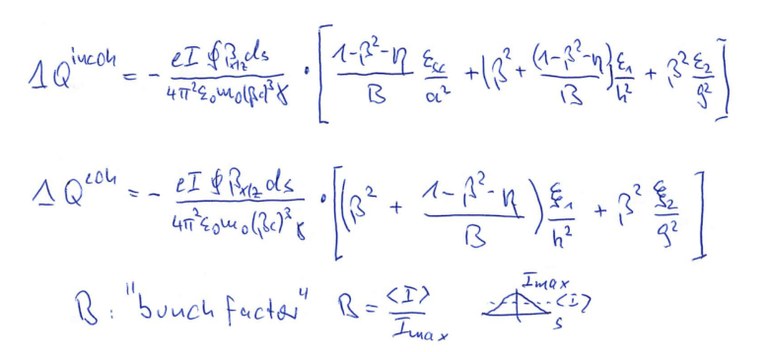 ΔQ^incoh = − (eI ∮β_x/z ds)/(4π²ε₀m₀(βc)³γ) · [ (1−β²−η)/B ε_sc/a² + (β² + (1−β²−η)/B) ε₁/h² + β² ε₂/g² ]
ΔQ^coh = − (eI ∮β_x/z ds)/(4π²ε₀m₀(βc)³γ) · [ (β² + (1−β²−η)/B) ξ₁/h² + β² ξ₂/g² ]
B : "bunch factor" B = <I>/I_max I_max <I> s